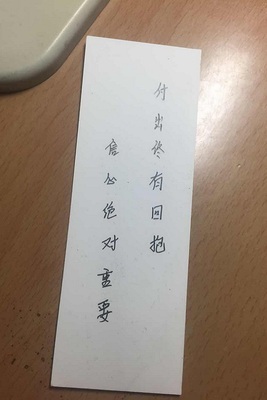 付出终有回抱
信心绝对重要